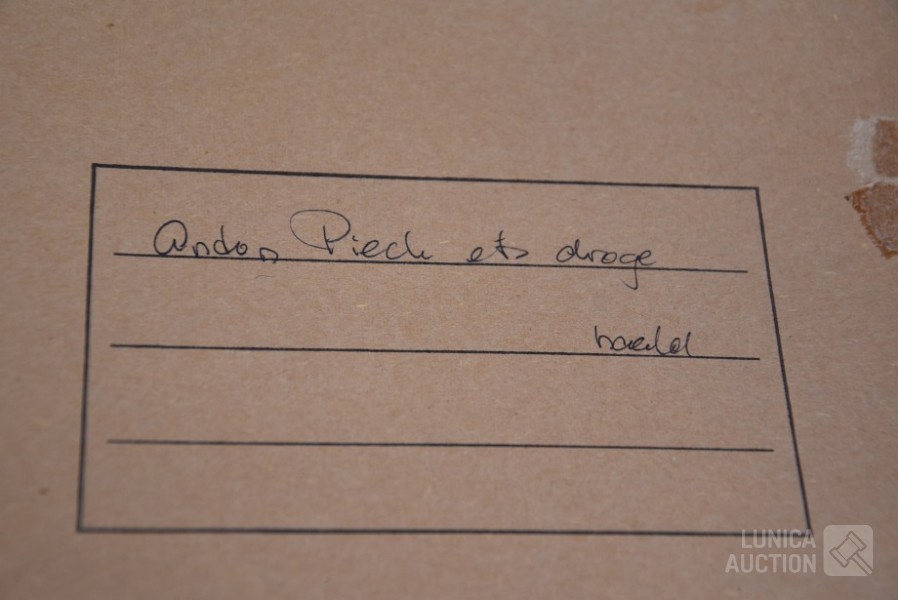 Anton Pieck ets droge
naald
LUNICA
AUCTION